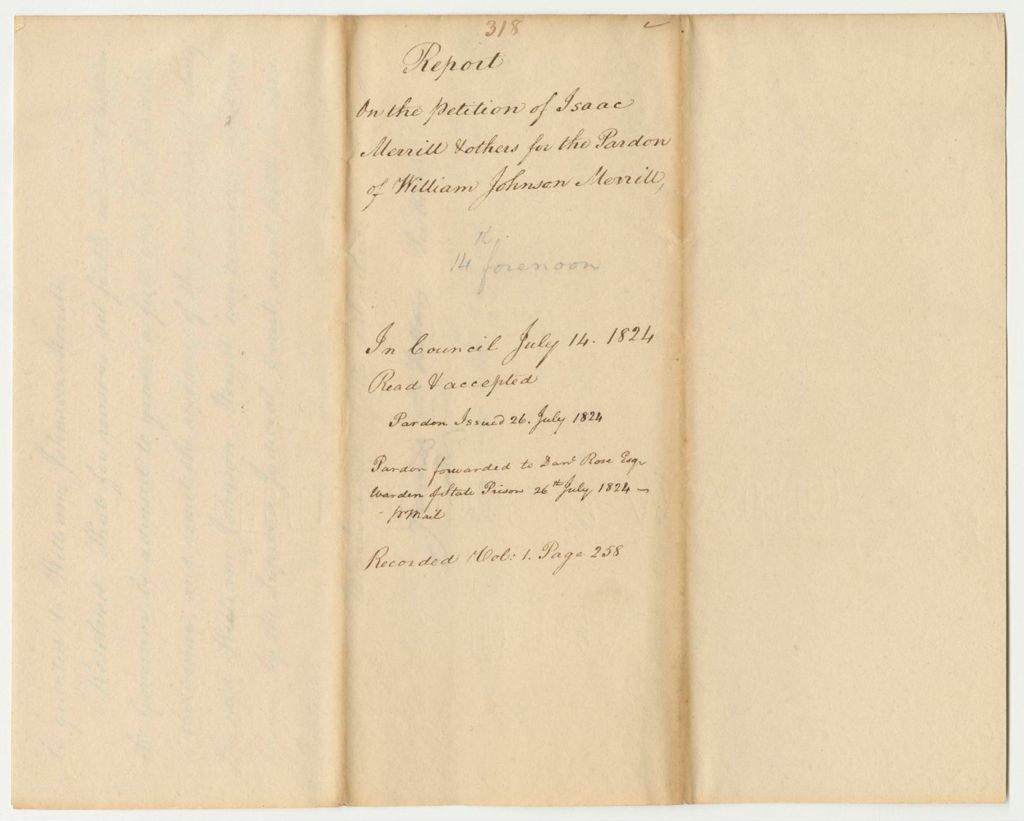 318
Report
On the petition of Isaac
Merrill & others for the Pardon
of William Johnson Merrill,
14 forenoon
In Council July 14. 1824
Read & accepted
Pardon Issued 26. July 1824
Pardon forwarded to Danl Rose Esqr
Warden of State Prison 26th July 1824 —
pr Mail
Recorded Vol: 1. Page 258